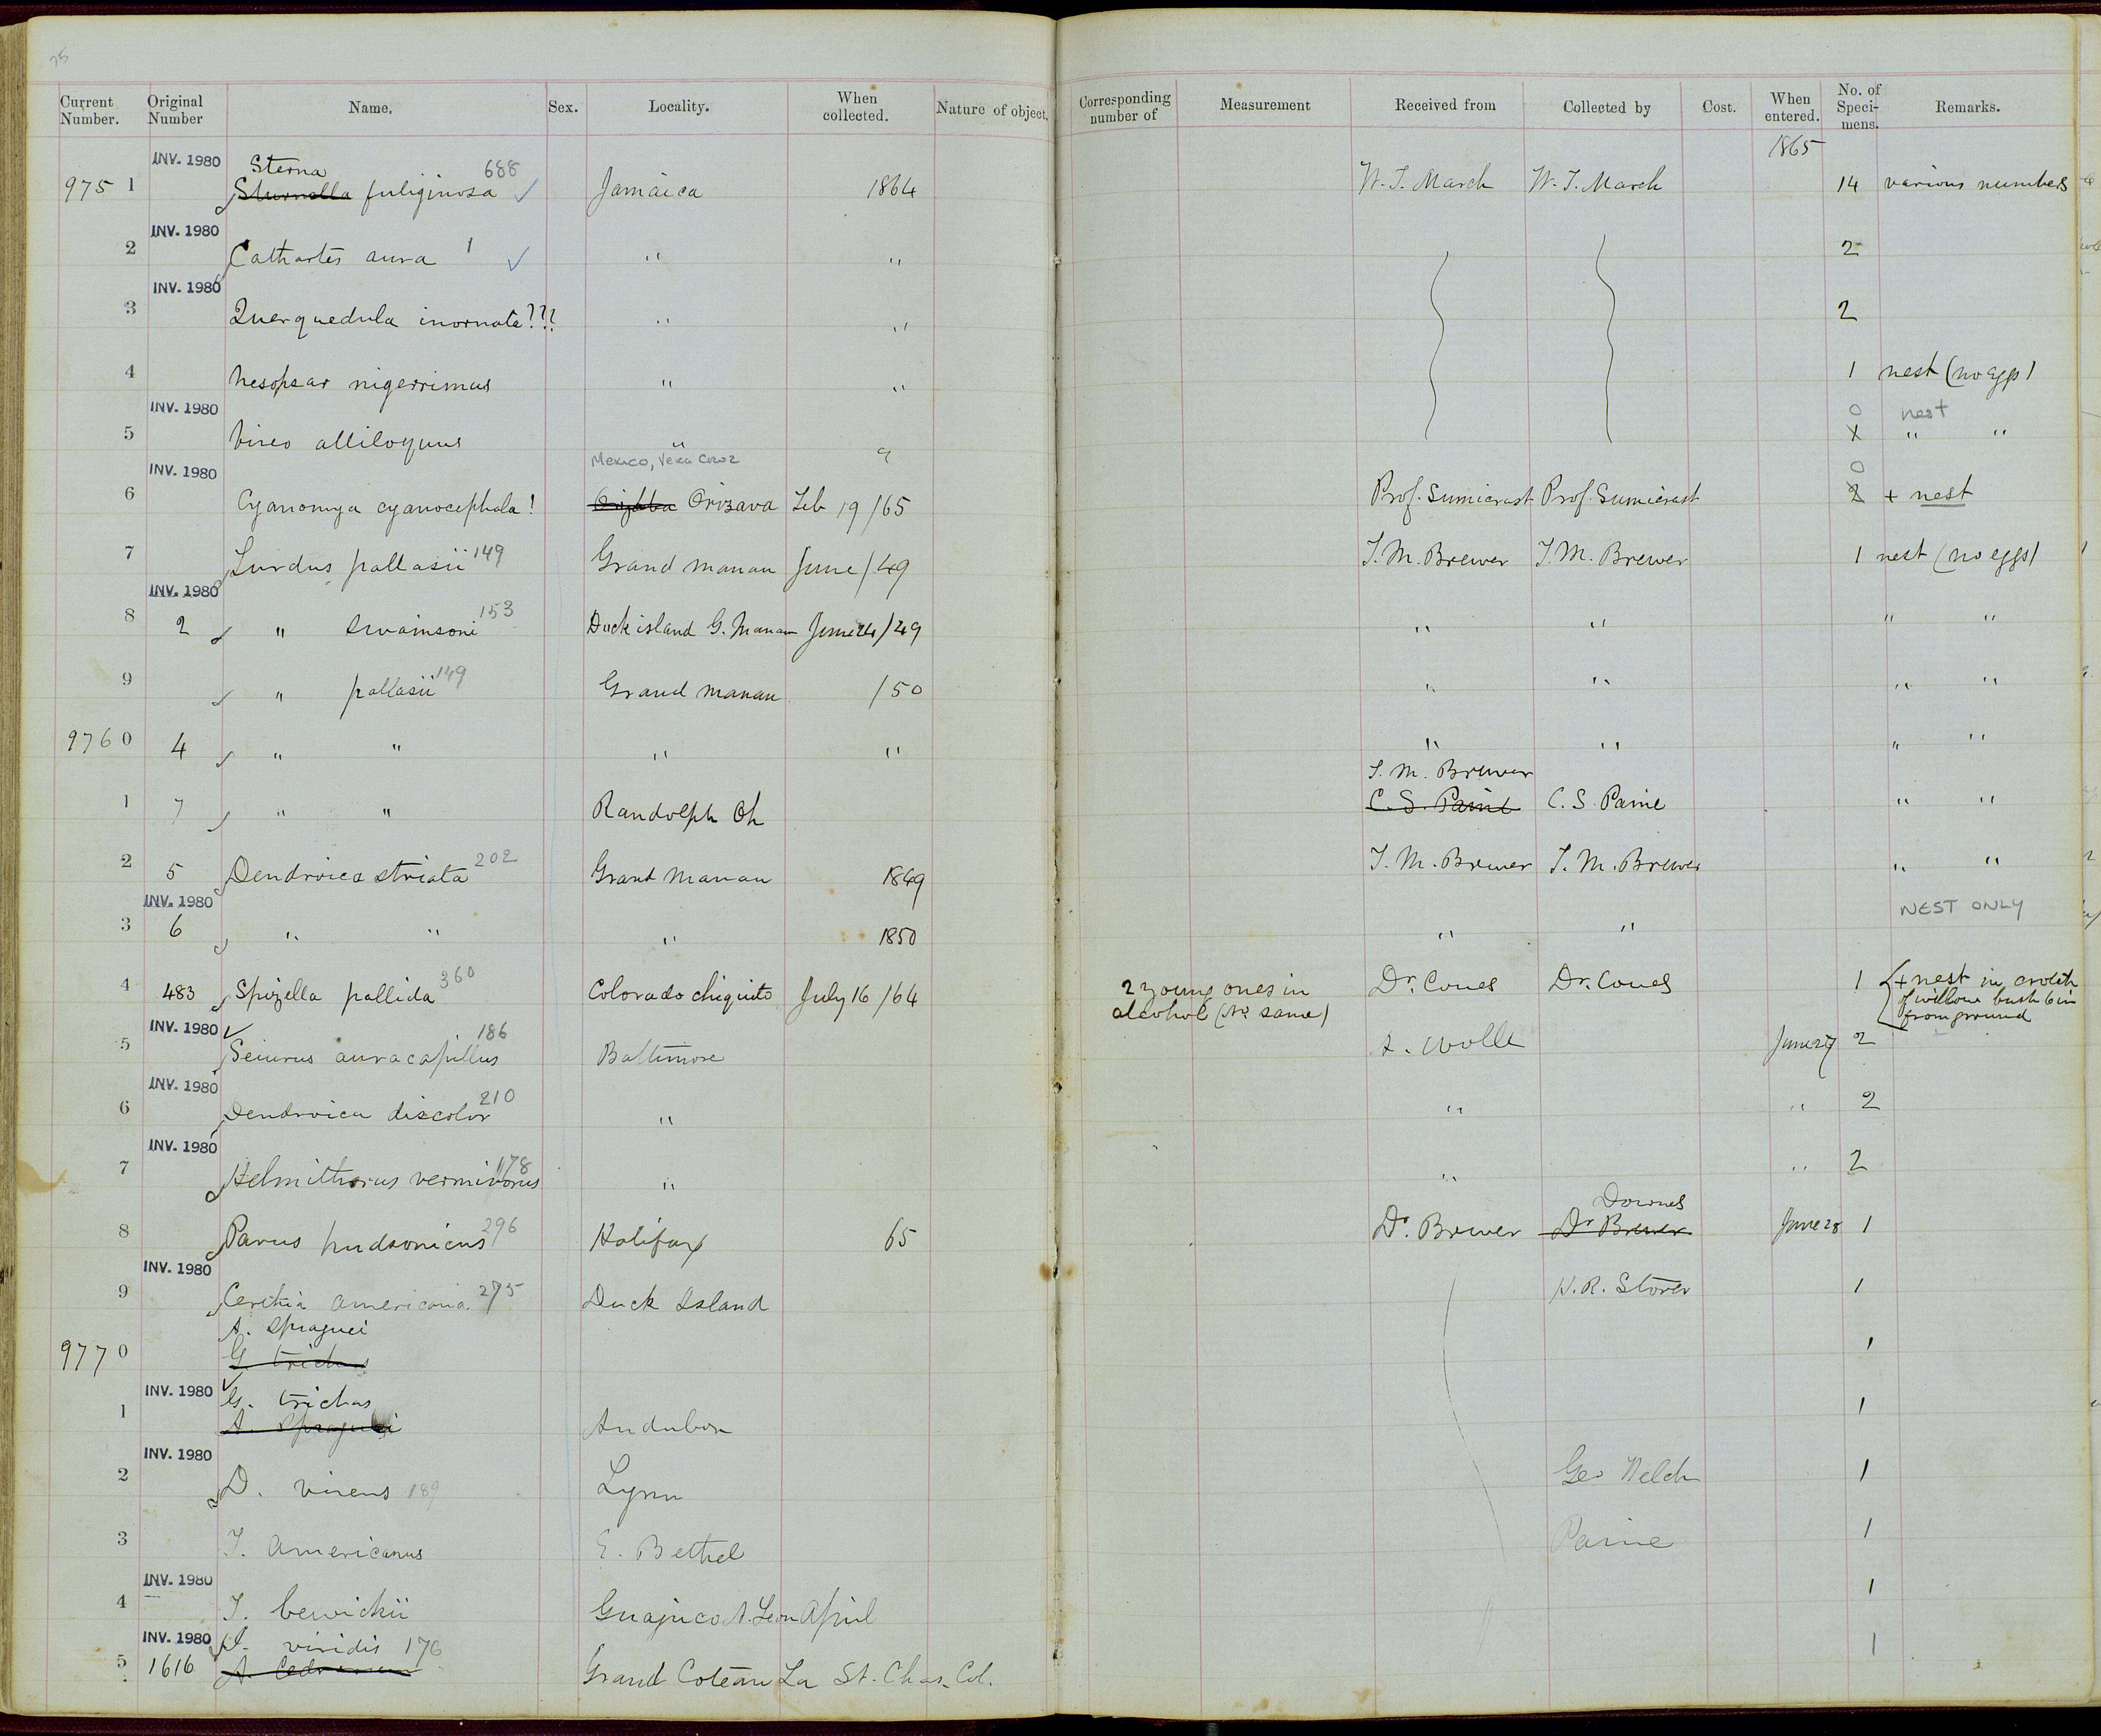 75
Current Number. Original Number Name. Sex. Locality. When collected. Nature of object. Corresponding number of Measurement Received from Collected by Cost. When entered. No. of Speci- mens. Remarks.
1865
INV. 1980 Sterna 688
975 1 Sturnella fuliginosa ✓ Jamaica 1864 W. T. March W. T. March 14 various numbers
INV. 1980
2 Cathartes aura 1 ✓ " " 2
INV. 1980
3 Querquedula inornata??? " " 2
4 Nesopsar nigerrimus " " 1 nest (no eggs)
INV. 1980 0 nest
5 Vireo altiloquus " " " "
INV. 1980 Mexico, Vera Cruz 0
6 Cyanomya cyanocephala! Orizaba Orizava Feb 19/65 Prof. Sumicrast Prof. Sumicrast 2 + nest
7 Turdus pallasii 149 Grand Manan June/49 T. M. Brewer T. M. Brewer 1 nest (no eggs)
INV. 1980
8 2 " Swainsoni 153 Duck island G. Manan June 24/49 " " " "
9 " pallasii 149 Grand Manan /50 " " " "
976 0 4 " " " " " " " "
T. M. Brewer
1 7 " " Randolph Oh C. S. Paine C. S. Paine " "
2 5 Dendroica striata 202 Grand Manan 1849 T. M. Brewer T. M. Brewer " "
INV. 1980 NEST ONLY
3 6 " " " 1850 " "
4 483 Spizella pallida 360 Colorado chiquito July 16/64 2 young ones in alcohol (No same) Dr. Coues Dr. Coues 1 + nest in crotch of willow bush 6 in from ground
INV. 1980 ✓
5 Seiurus auracapillus 186 Baltimore A. Wolle June 27 2
INV. 1980
6 Dendroica discolor 210 " " " 2
INV. 1980
7 Helmitherus vermivorus 178 " " " 2
Downes
8 Parus hudsonicus 296 Halifax 65 Dr. Brewer Dr Brewer June 28 1
INV. 1980
9 Certhia americana 275 Duck Island H. R. Storer 1
A. Spraguei
977 0 G. trichas 1
INV. 1980 ✓ G. trichas
1 A. Spraguei Audubon 1
INV. 1980
2 D. virens 189 Lynn Geo Welch 1
3 T. americanus E. Bethel Paine 1
INV. 1980
4 T. bewickii Guajuco N. Leon April 1
INV. 1980 I. viridis 176
5 1616 Grand Coteau La St. Chas. Col. 1